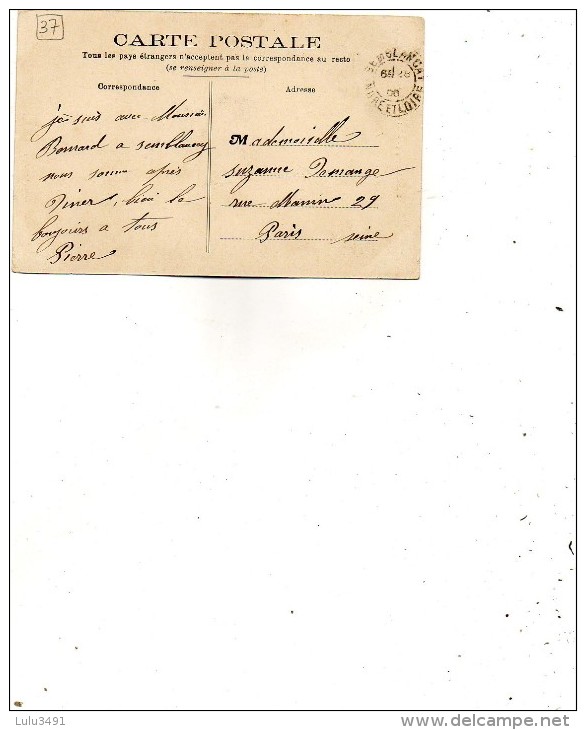 37
CARTE POSTALE
Tous les pays étrangers n'acceptent pas la correspondance au recto
(se renseigner à la poste)
Correspondance
Adresse
SEMBLANÇAY
INDRE ET LOIRE
je suis avec Monsieur
Bonnard a semblancay
nous somme après
Diner, bien le
boujours a tous
Pierre
Mademoiselle
suzanne Demange
rue 29
Paris seine
Lulu3491
delcampe.net